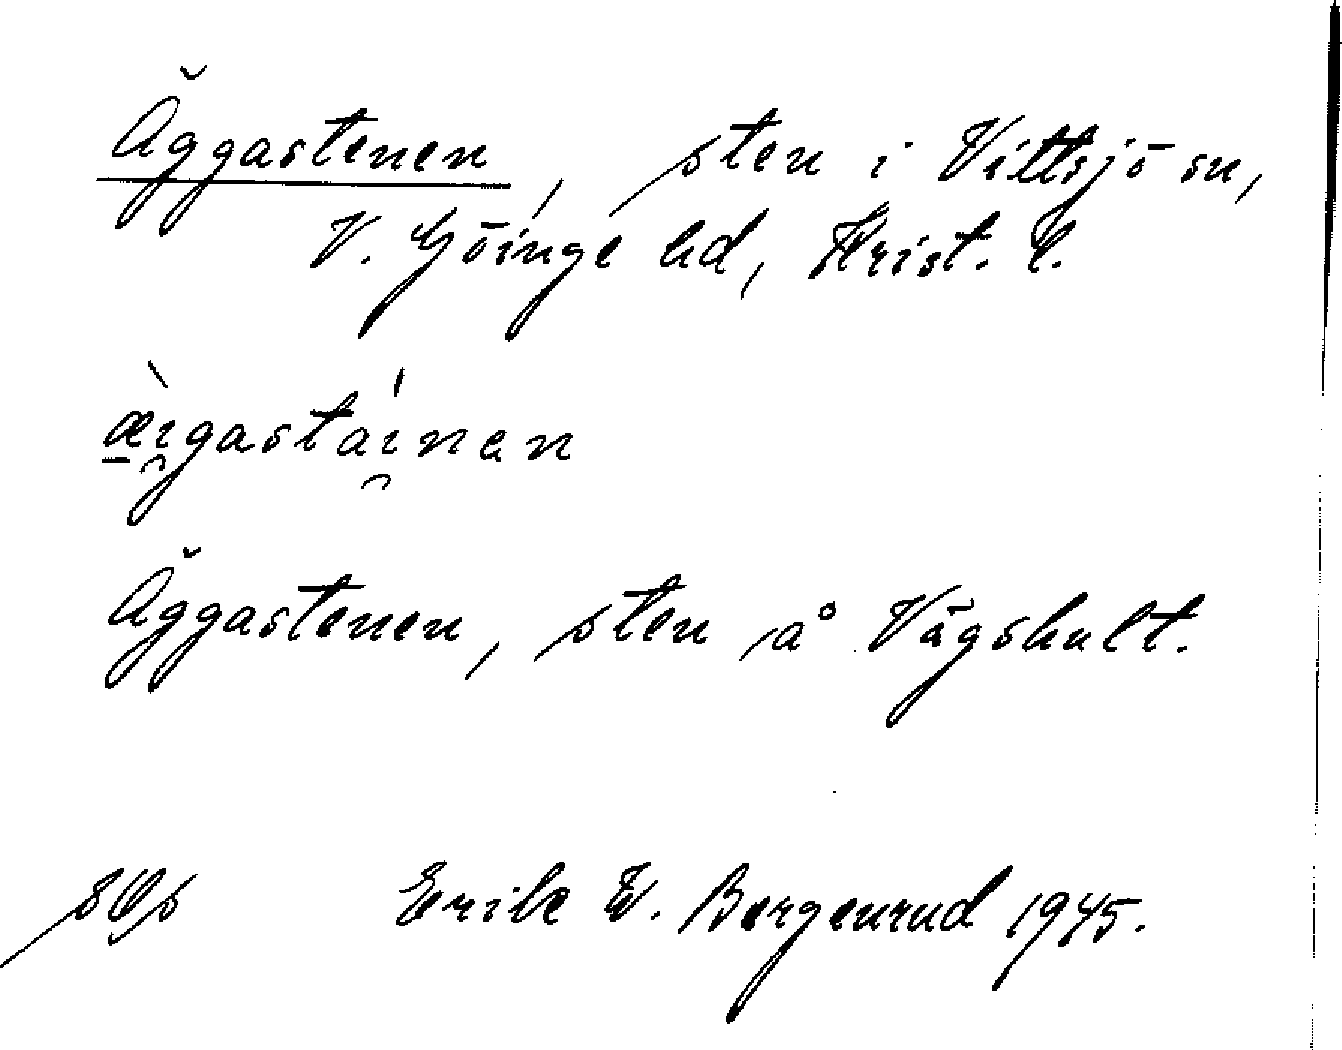 Äggastenen, sten i Vittsjö sn,
V. Göinge hd, Krist. l.
æ̀i̯gastái̯nan
Äggastenen, sten på Vägshult.
Erik W. Bergenrud 1945.